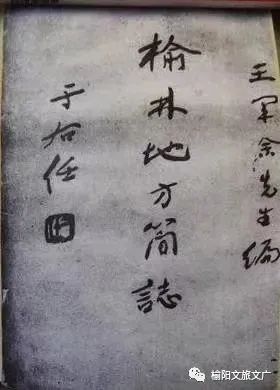 王军余先生编
榆林地方简誌
于右任
榆阳文旅文广